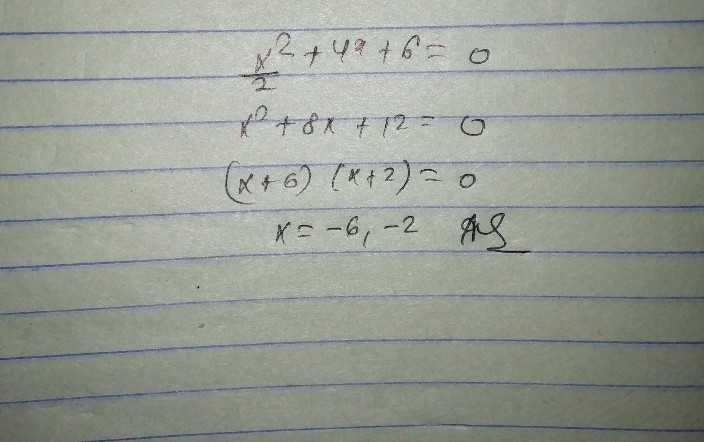 x²/2 + 4x + 6 = 0
x² + 8x + 12 = 0
(x+6) (x+2) = 0
x = -6, -2 Ans